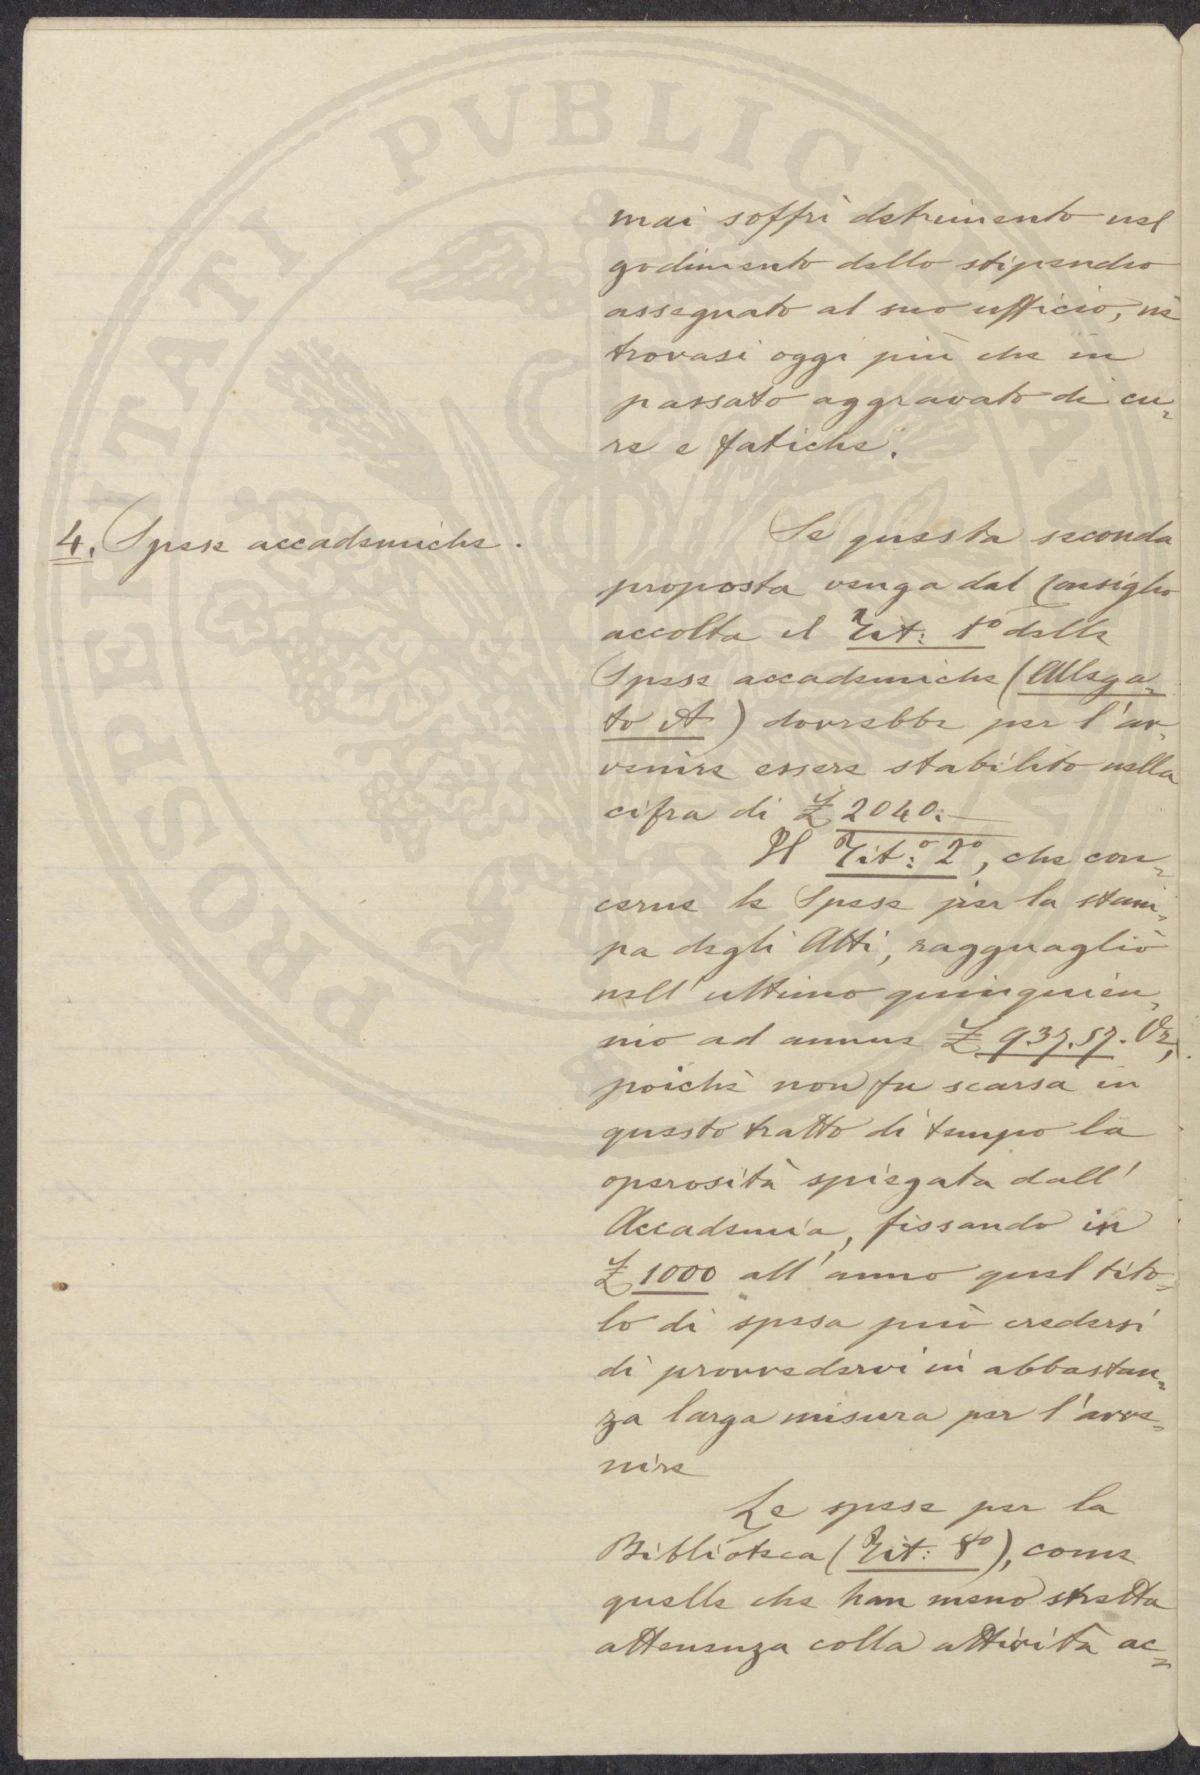 PROSPERITATI PVBLICAE
mai soffrì detrimento nel
godimento dello stipendio
assegnato al suo ufficio, nè
trovasi oggi più che in
passato aggravato di cu-
re e fatiche.
4. Spese accademiche.
Se questa seconda
proposta venga dal Consiglio
accolta il Tit: 1º delle
Spese accademiche (Allega-
to A) dovrebbe per l'av-
venire essere stabilito nella
cifra di £ 2040.
Il Tit:º 2º, che con-
cerne le Spese per la stam-
pa degli Atti, ragguagliò
nell'ultimo quinquien-
nio ad annue £ 937.57. Or,
poichè non fu scarsa in
questo tratto di tempo la
operosità spiegata dall'
Accademia, fissando in
£ 1000 all'anno quel tito-
lo di spesa può credersi
di provvedervi in abbastan-
za larga misura per l'avve-
nire
Le spese per la
Biblioteca (Tit: 8º), come
quelle che han meno stretta
attenenza colla attività ac-